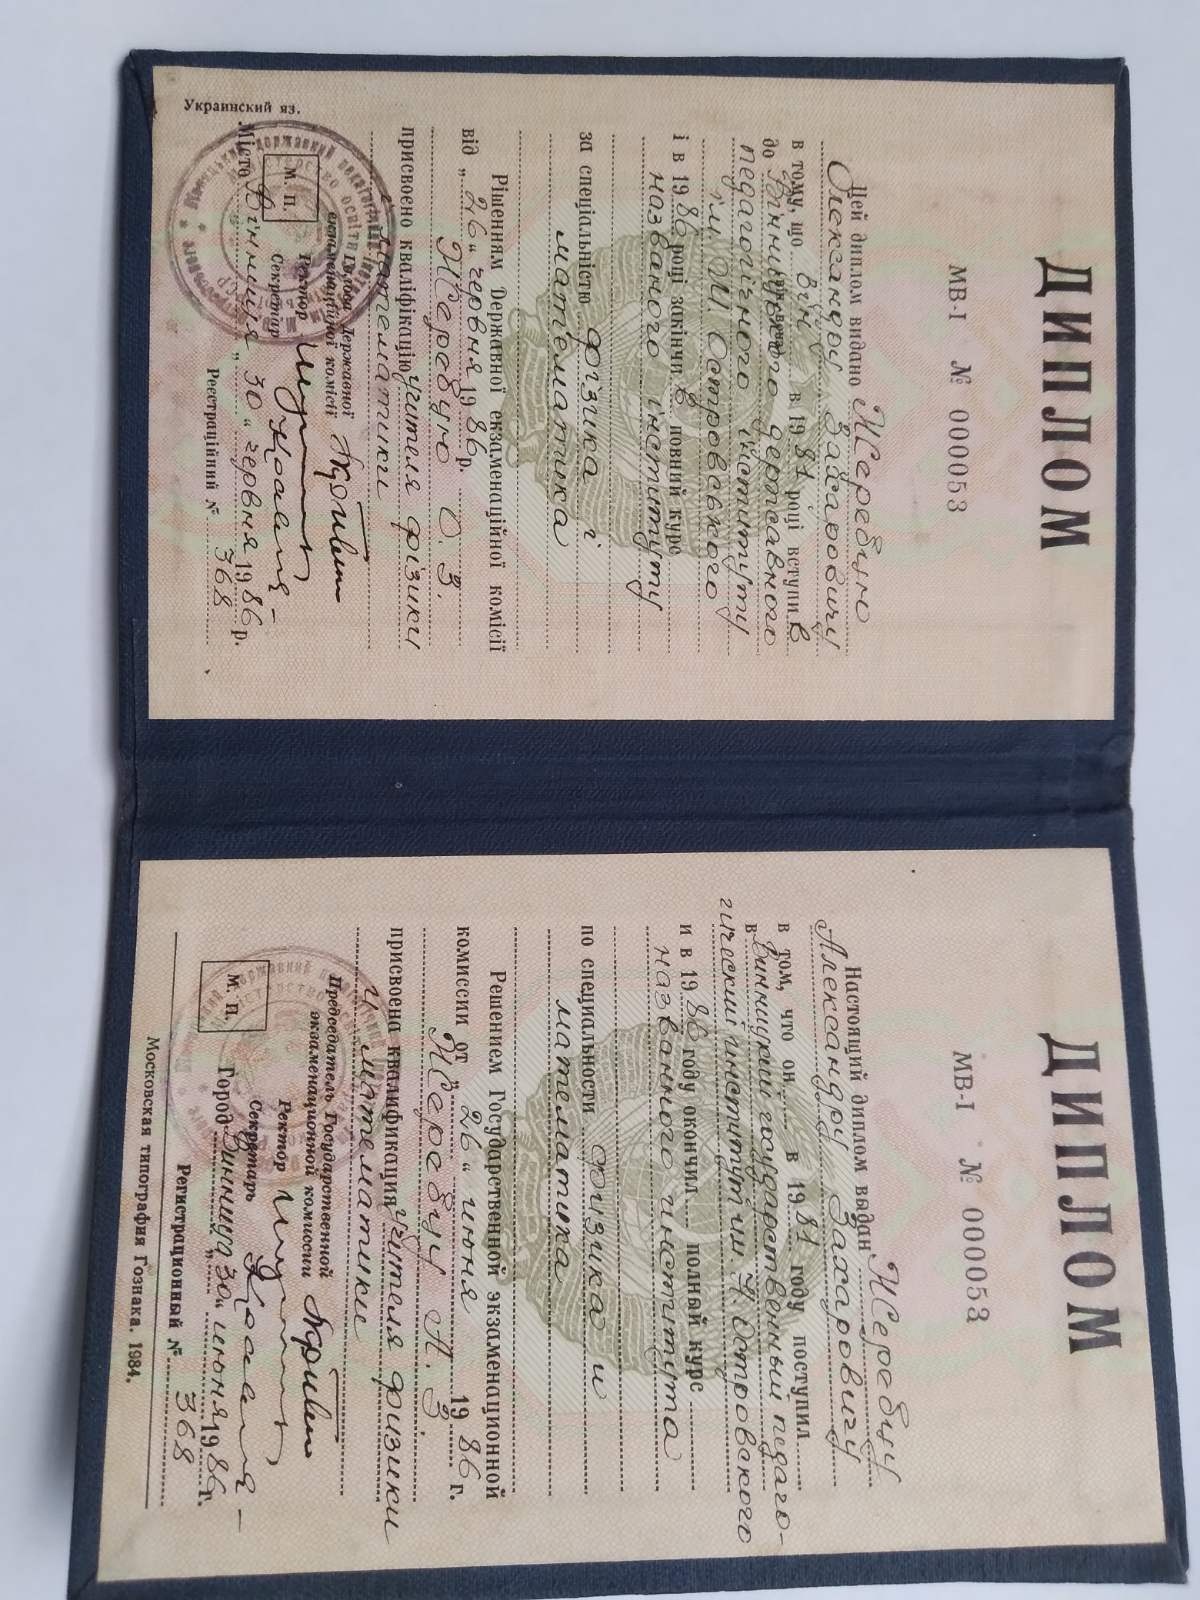 ДИПЛОМ
МВ-I № 000053
Цей диплом видано Жеребцю
Олександру Захаровичу
в тому, що він в 1981 році вступив
до Вінницького державного
педагогічного інституту
ім. М. Островського
і в 1986 році закінчив повний курс
названого інституту
за спеціальністю фізика і
математика
Рішенням Державної екзаменаційної комісії
від „26“ червня 1986 р.
Жеребцю О. З.
присвоено кваліфікацію учителя фізики
математики
Голова Державної
екзаменаційної комісії
Ректор
Секретар
М. П.
Місто Вінниця „30“ червня 1986 р.
Реєстраційний № 368
Украинский яз.
ДИПЛОМ
МВ-I № 000053
Настоящий диплом выдан Жеребцу
Александру Захаровичу
в том, что он в 1981 году поступил
в Винницкий государственный педаго-
гический институт им. Н. Островского
и в 1986 году окончил полный курс
названного института
по специальности физика и
математика
Решением Государственной экзаменационной
комиссии от „26“ июня 1986 г.
Жеребцу А. З.
присвоена квалификация учителя физики
и математики
Председатель Государственной
экзаменационной комиссии
Ректор
Секретарь
М. П.
Город Винница „30“ июня 1986 г.
Регистрационный № 368
Московская типография Гознака. 1984.